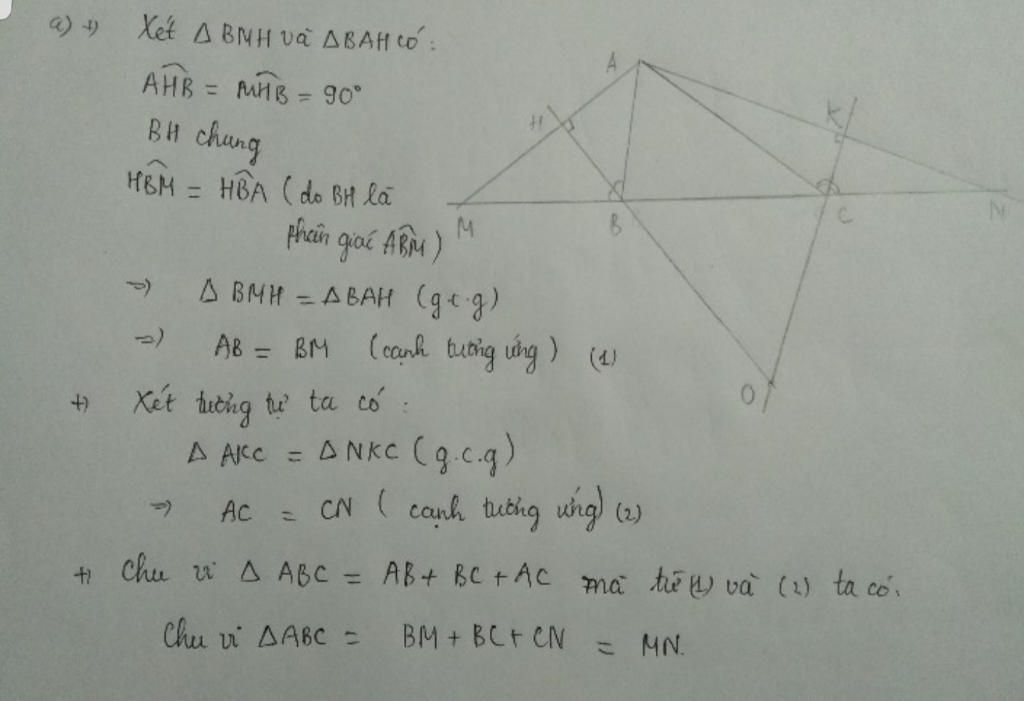 a) +) Xét Δ BMH và ΔBAH có:
AHB = MHB = 90°
BH chung
HBM = HBA (do BH là
phân giác ABM)
=> Δ BMH = ΔBAH (g.c.g)
=> AB = BM (cạnh tương ứng) (1)
+) Xét tương tự ta có:
Δ AKC = Δ NKC (g.c.g)
=> AC = CN (cạnh tương ứng) (2)
+) Chu vi Δ ABC = AB + BC + AC mà từ (1) và (2) ta có.
Chu vi ΔABC = BM + BC + CN = MN.
A
H
K
M
B
C
N
O